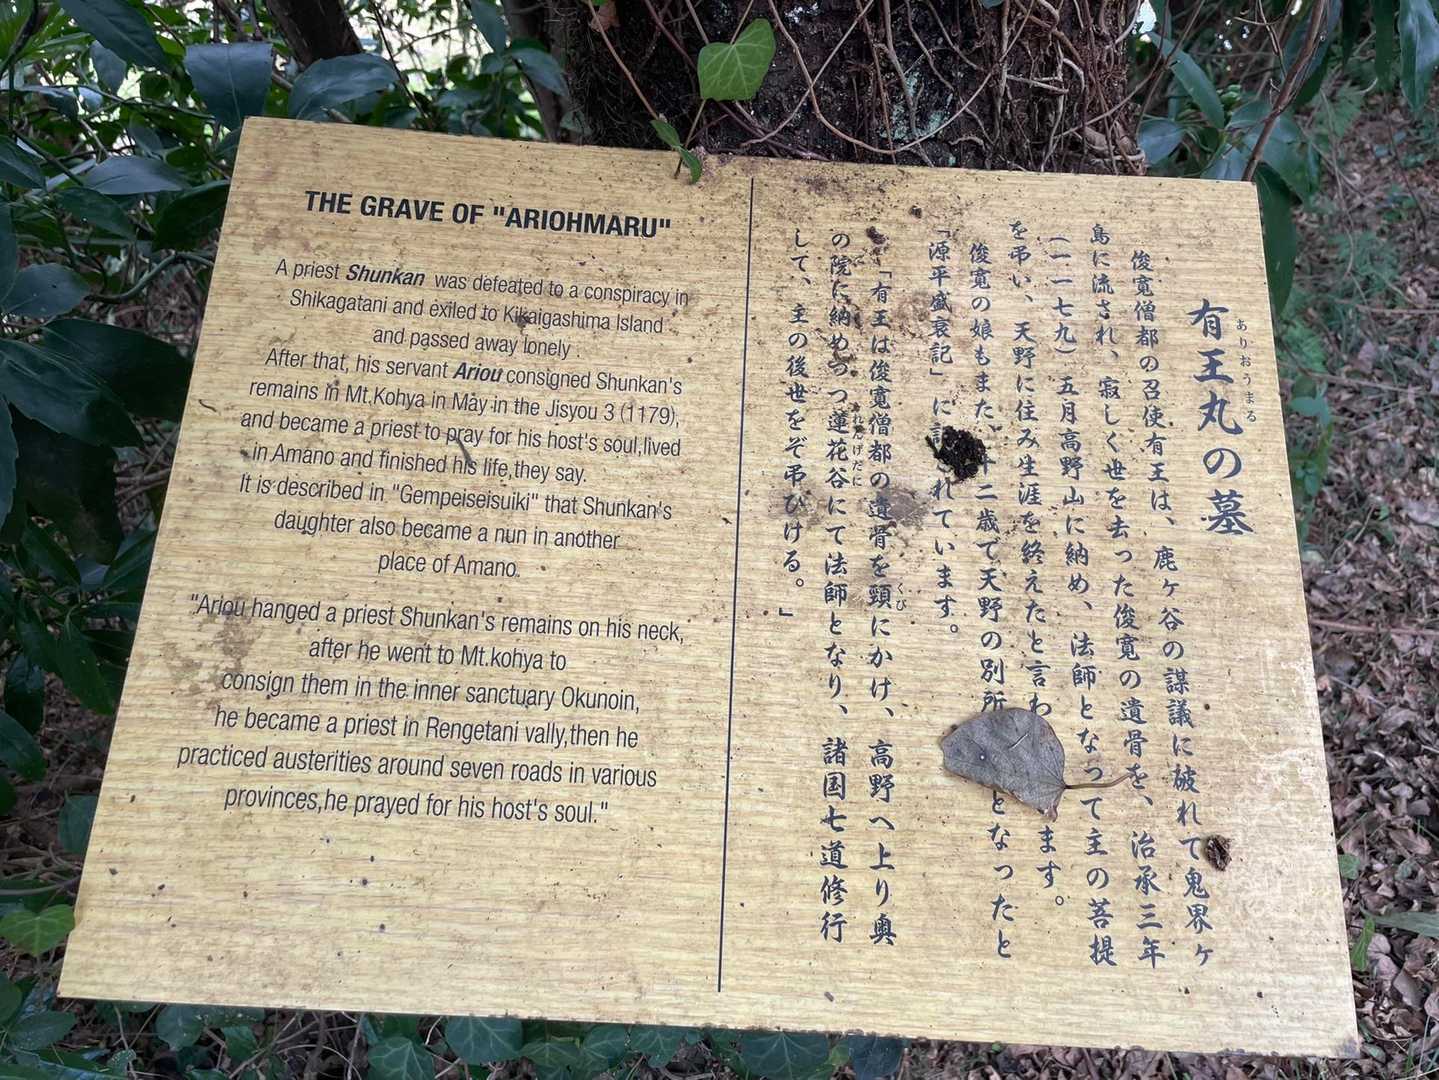 THE GRAVE OF "ARIOHMARU"
A priest Shunkan was defeated to a conspiracy in
Shikagatani and exiled to Kikaigashima Island
and passed away lonely .
After that, his servant Ariou consigned Shunkan's
remains in Mt,Kohya in May in the Jisyou 3 (1179),
and became a priest to pray for his host's soul,lived
in Amano and finished his life,they say.
It is described in "Gempeiseisuiki" that Shunkan's
daughter also became a nun in another
place of Amano.
"Ariou hanged a priest Shunkan's remains on his neck,
after he went to Mt.kohya to
consign them in the inner sanctuary Okunoin,
he became a priest in Rengetani vally,then he
practiced austerities around seven roads in various
provinces,he prayed for his host's soul."
有王丸の墓
ありおうまる
俊寛僧都の召使有王は、鹿ヶ谷の謀議に破れて鬼界ヶ
島に流され、寂しく世を去った俊寛の遺骨を、治承三年
(一一七九)五月高野山に納め、法師となって主の菩提
を弔い、天野に住み生涯を終えたと言わ ます。
俊寛の娘もまた、 二歳で天野の別所 となったと
「源平盛衰記」に れています。
「有王は俊寛僧都の遺骨を頸にかけ、高野へ上り奥
くび
の院に納めつつ蓮花谷にて法師となり、諸国七道修行
れんげだに
して、主の後世をぞ弔ひける。」